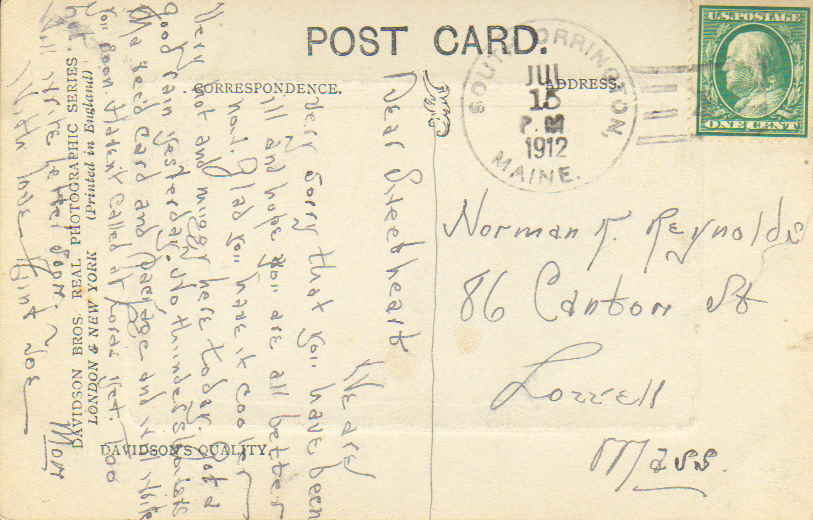 POST CARD.
CORRESPONDENCE.
ADDRESS.
U.S. POSTAGE
ONE CENT
SOUTH ORRINGTON
JUL
15
P.M
1912
MAINE.
Norman K. Reynolds
86 Canton St
Lowell
Mass.
Dear Sweetheart
We are
very sorry that you have been
ill and hope you are all better
now. Glad you have it cooler
Very hot and muggy here today. Got a
good rain yesterday. No thunder showers
Ma rec'd card and package and will write
you soon. Haven't called at yet. Too
hot. Will write letter soon.
With love Aint Joe
Mon
DAVIDSON BROS. REAL PHOTOGRAPHIC SERIES.
LONDON & NEW YORK (Printed in England)
DAVIDSON'S QUALITY.